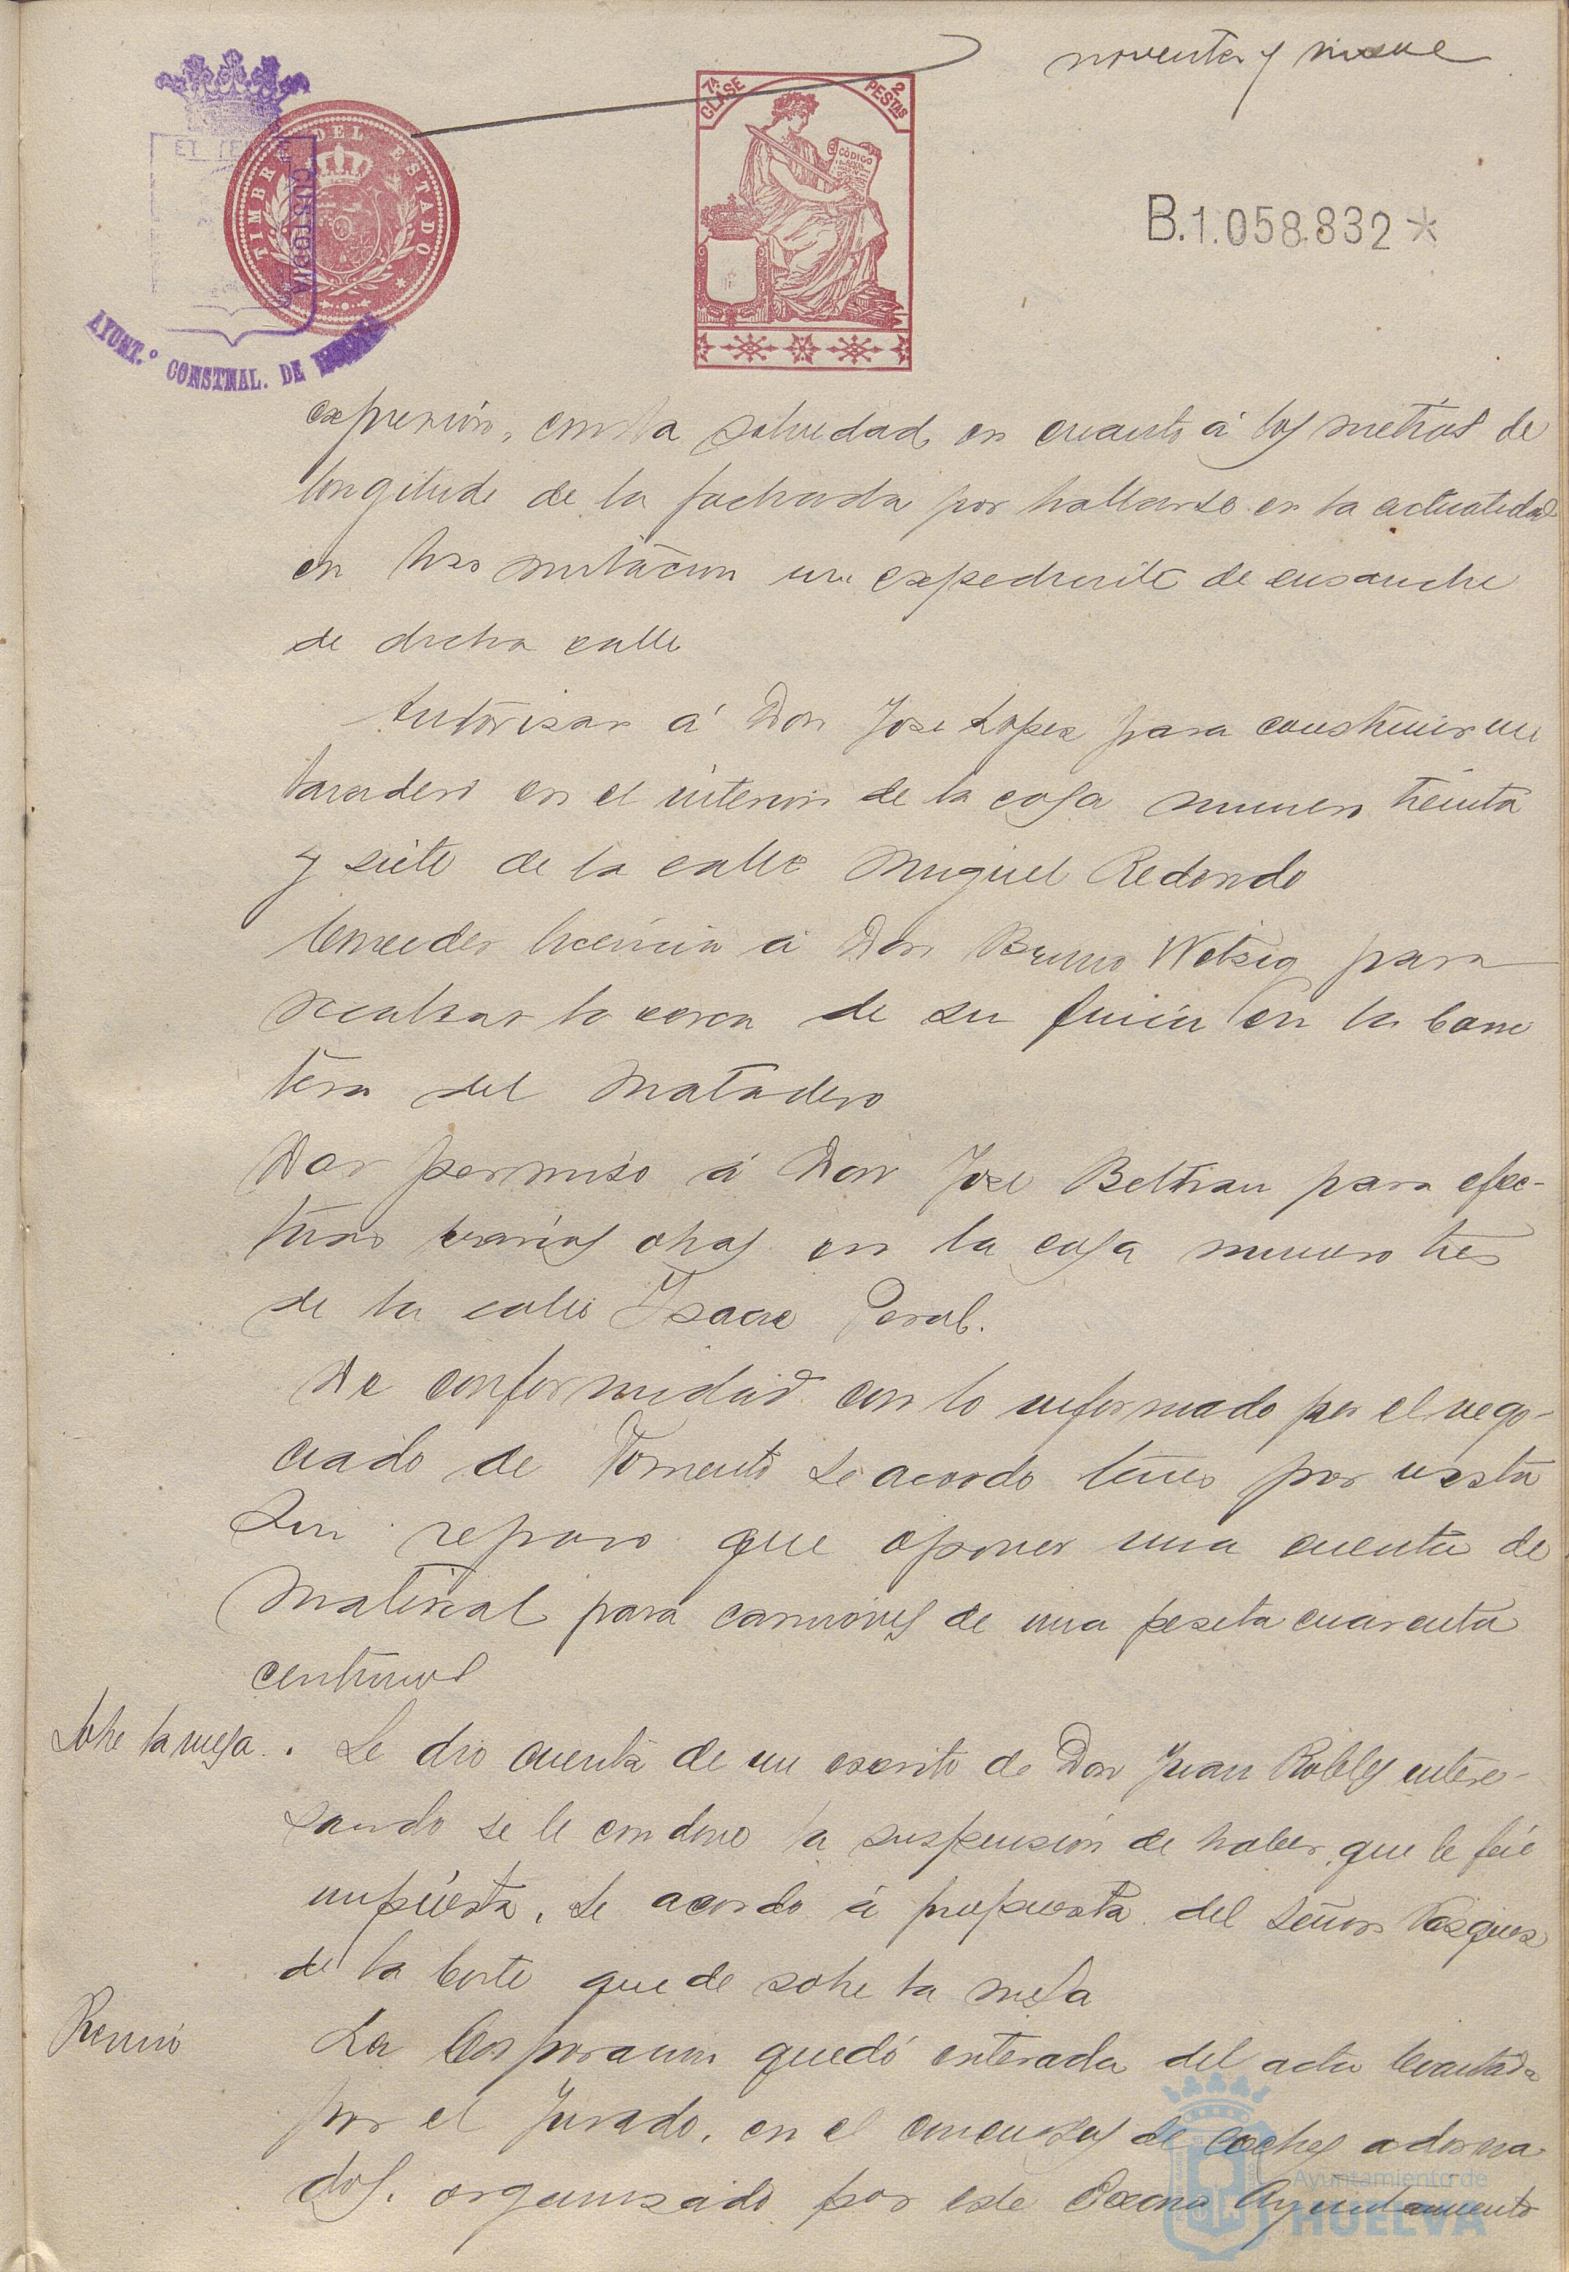 noventa y nueve
7ª CLASE
2 PESTAS
CÓDIGO
TIMBRE DEL ESTADO
CUSTODIA
AYUNT.º CONSTNAL. DE HUELVA
B.1.058.832*
expresión, con la salvedad, en cuanto á los metros de
longitude de la fachada por hallarse en la actualidad
en tramitacion un expediente de ensanche
de dicha calle
Autorisar á Don Jose Lopez para construir un
lavadero en el interior de la casa numero treinta
y siete de la calle Miguel Redondo
Conceder licencia á Don Bruno Wetzig para
realzar la cerca de su finca en la Carre
tera del Matadero
Dar permiso á Don José Beltran para efec-
tuar varias obras en la casa numero tres
de la calle Isaac Peral.
De conformidad con lo informado por el nego-
ciado de Fomento se acordo tener por vista
sin reparo que oponer una cuenta de
material para camiones de una peseta cuarenta
centimos
Sobre la mesa. Se dio cuenta de un escrito de Don Juan Robles intere-
sando se le condone la suspension de haber que le fué
impuesta, se acordo á propuesta del señor Vazquez
de la Corte quede sobre la mesa
Premio La Corporacion quedó enterada del acta levantada
por el Jurado, en el concurso de coches adorna
dos, organizado por este Excmo Ayuntamiento
Ayuntamiento de
HUELVA